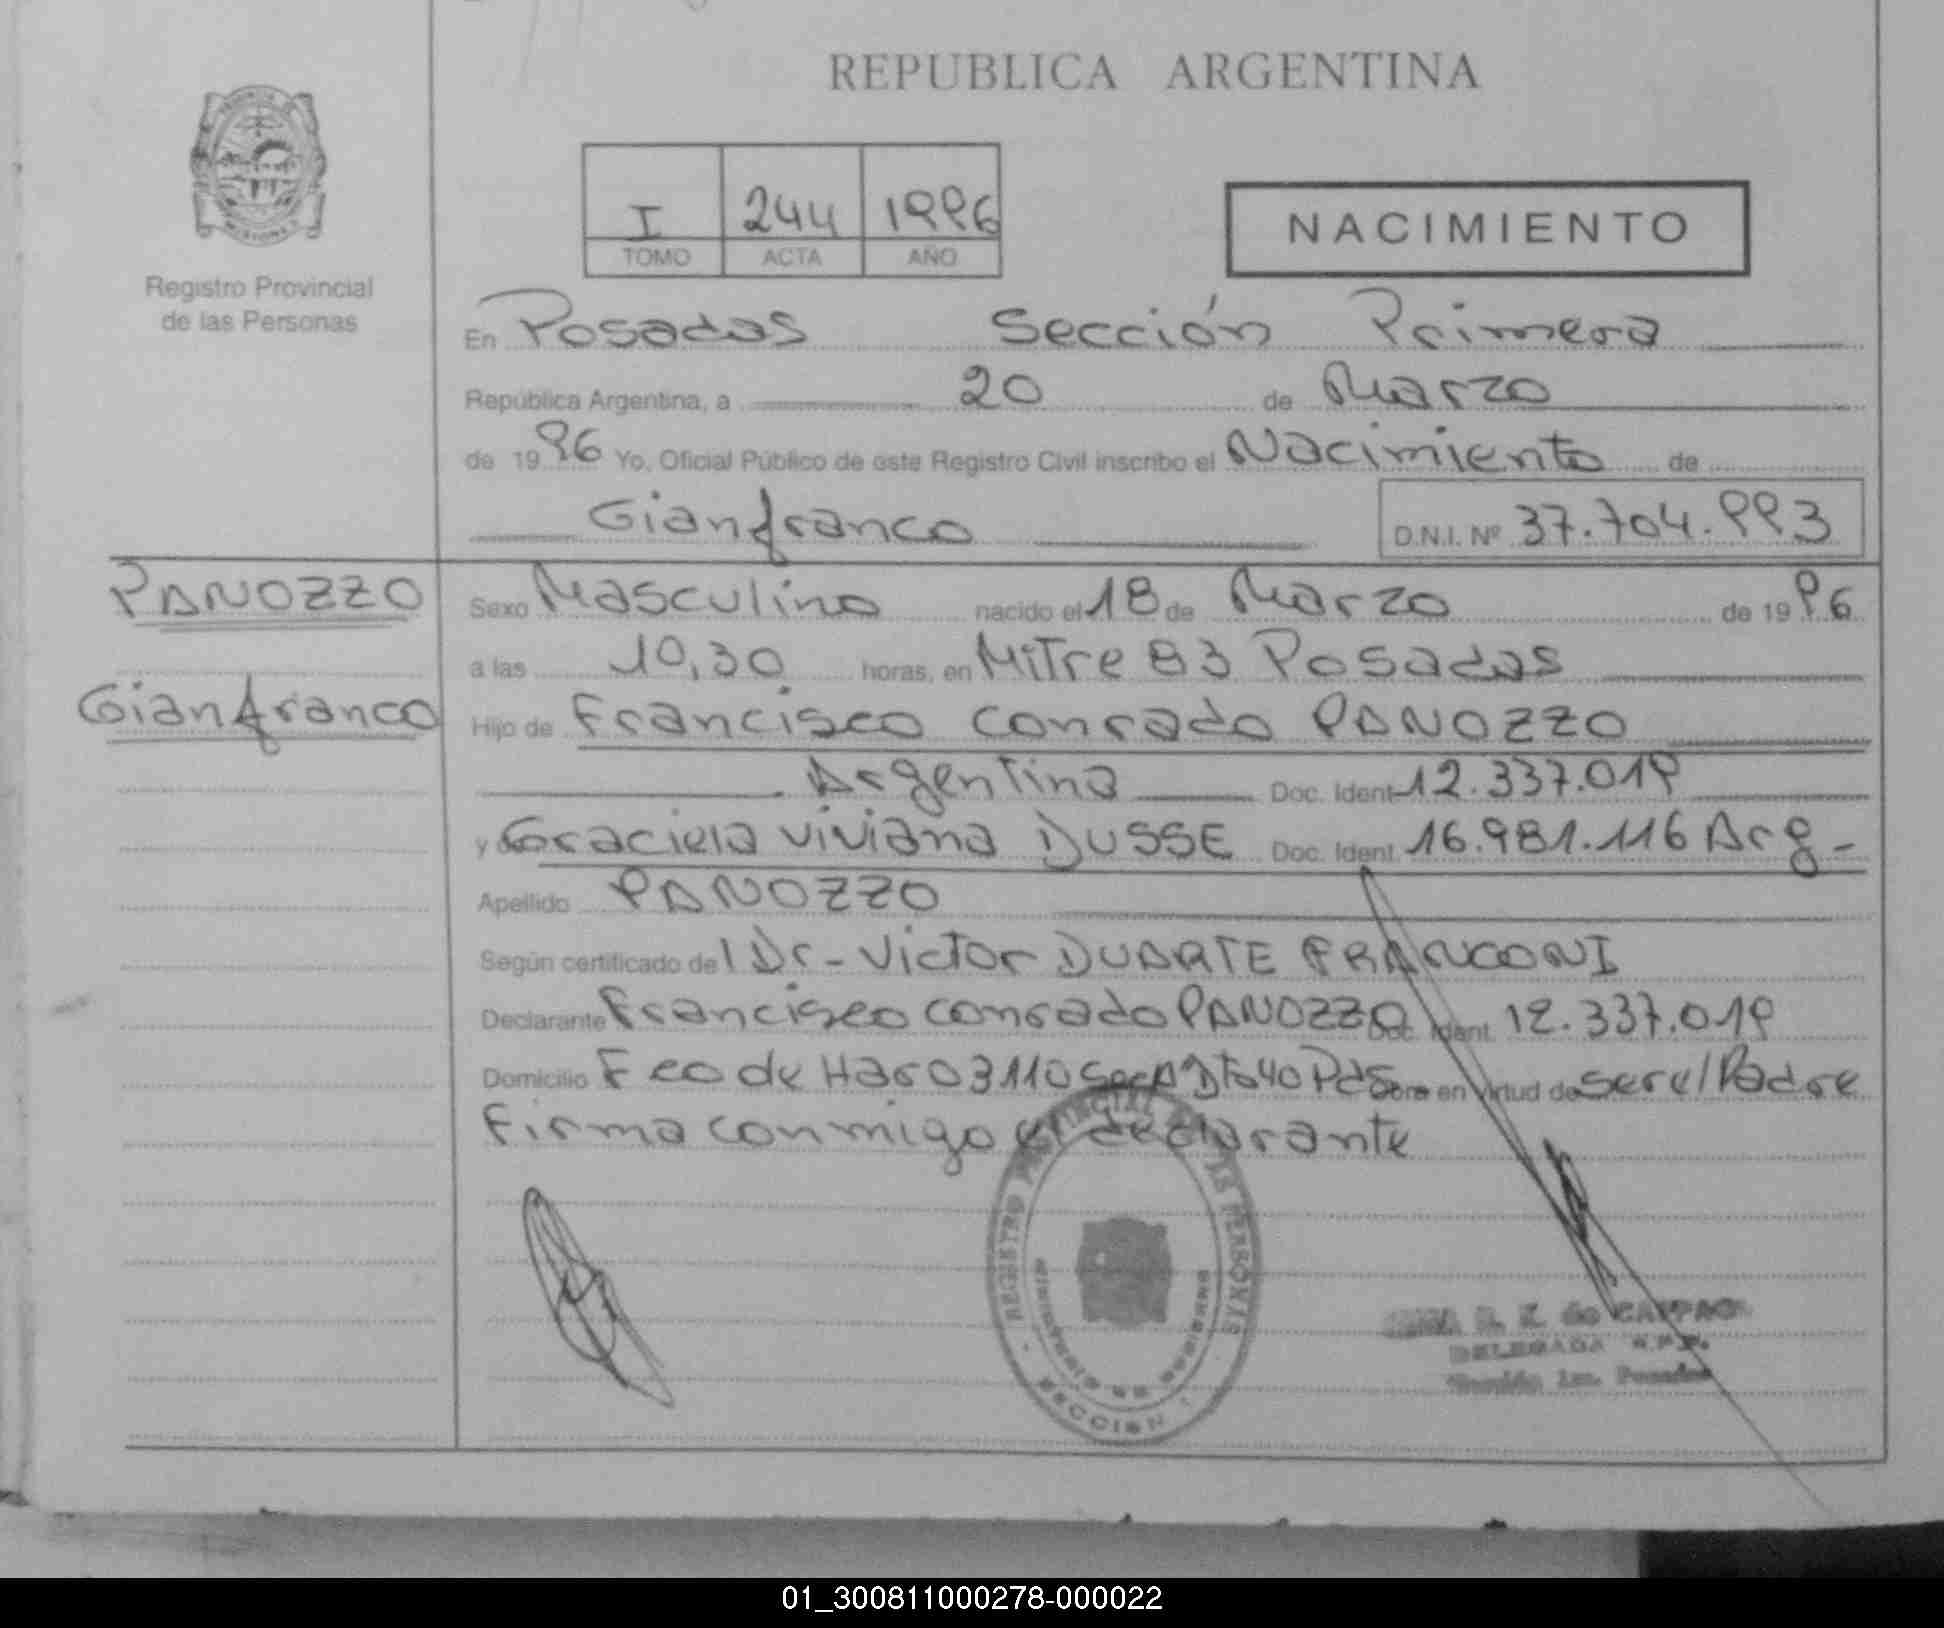 REPUBLICA ARGENTINA
PROVINCIA DE
MISIONES
Registro Provincial
de las Personas
I 244 1996
TOMO ACTA AÑO
NACIMIENTO
En Posadas Sección Primera
República Argentina, a 20 de Marzo
de 1996 Yo, Oficial Público de este Registro Civil inscribo el Nacimiento de
Gianfranco D.N.I. Nº 37.704.993
PANOZZO
Gianfranco
Sexo Masculino nacido el 18 de Marzo de 1996
a las 10,30 horas, en Mitre 83 Posadas
Hijo de Francisco Conrado PANOZZO
Argentina Doc. Ident 12.337.019
y Graciela Viviana DUSSE Doc. Ident. 16.981.116 Arg-
Apellido PANOZZO
Según certificado del Dr- Victor DUARTE FRANCONI
Declarante Francisco Conrado PANOZZO Doc. Ident. 12.337.019
Domicilio Fco de Haro 3110 Dto 40 Pdas obra en virtud de ser el Padre
Firma conmigo el declarante
REGISTRO PROVINCIAL DE LAS PERSONAS
SECCION
de CAMPAG
DELEGADA R.P.P.
Sección 1ra. Posadas
01_300811000278-000022